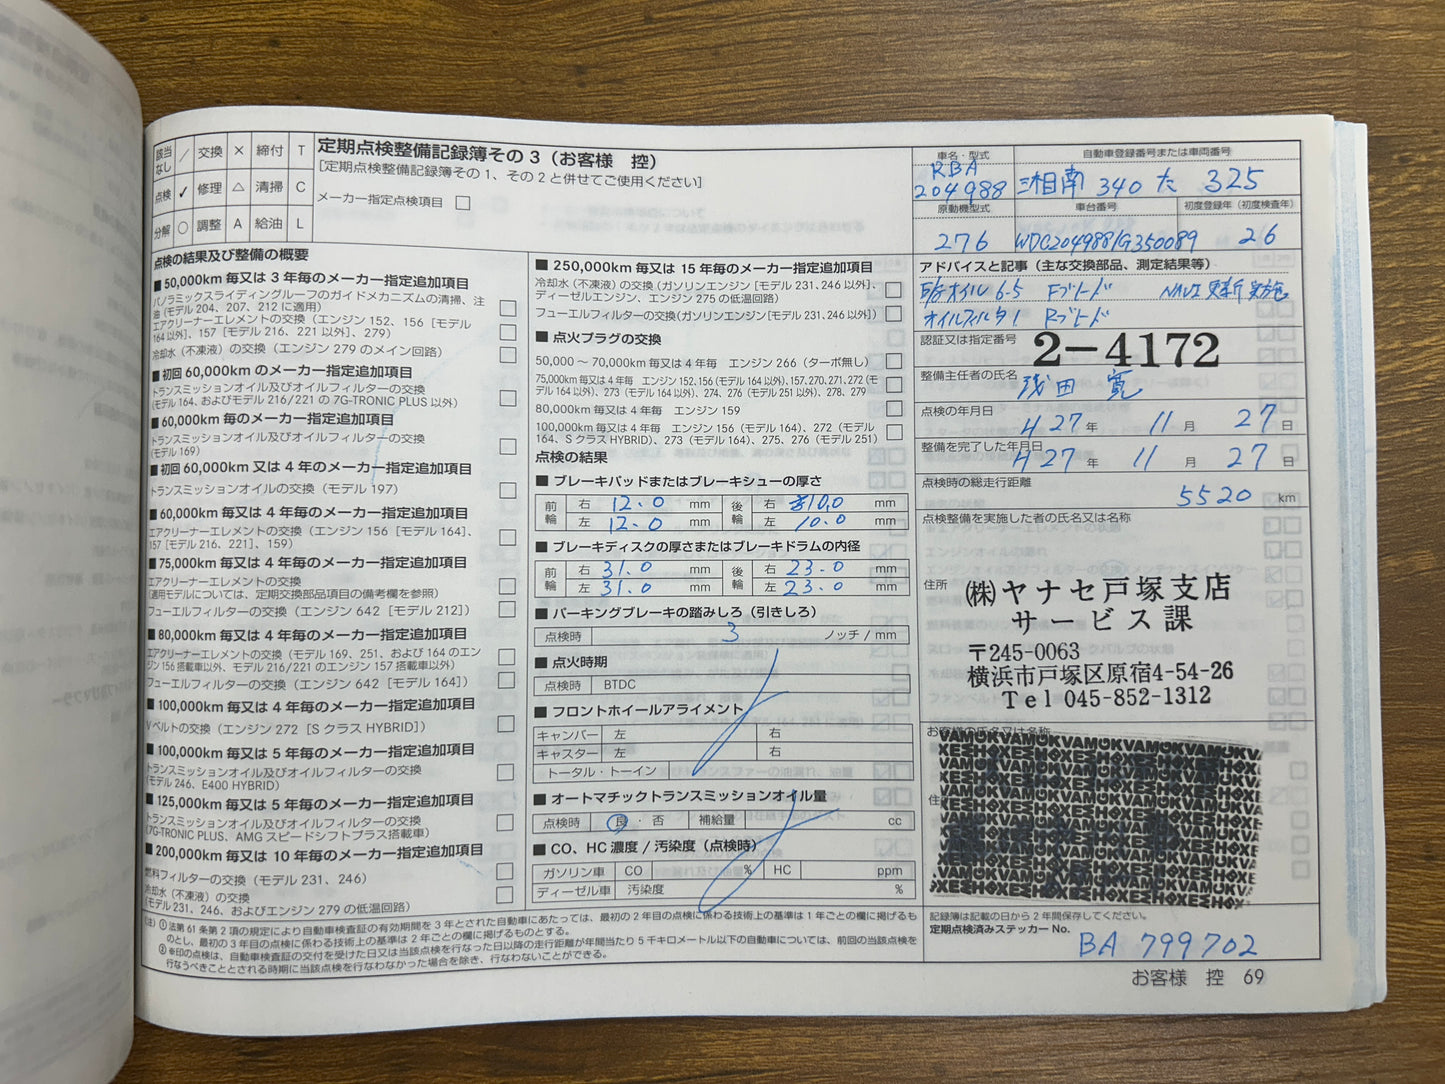 該当なし ／ 交換 × 締付 T
点検 ✓ 修理 △ 清掃 C
分解 ○ 調整 A 給油 L
定期点検整備記録簿その3（お客様 控）
[定期点検整備記録簿その1、その2と併せてご使用ください]
メーカー指定点検項目 □
点検の結果及び整備の概要
■ 50,000km 毎又は 3 年毎のメーカー指定追加項目
パノラミックスライディングルーフのガイドメカニズムの清掃、注
油（モデル 204、207、212 に適用）
エアクリーナーエレメントの交換（エンジン 152、156［モデル
164 以外］、157［モデル 216、221 以外］、279）
冷却水（不凍液）の交換（エンジン 279 のメイン回路）
■ 初回 60,000km のメーカー指定追加項目
トランスミッションオイル及びオイルフィルターの交換
（モデル 164、およびモデル 216/221 の 7G-TRONIC PLUS 以外）
■ 60,000km 毎のメーカー指定追加項目
トランスミッションオイル及びオイルフィルターの交換
（モデル 169）
■ 初回 60,000km 又は 4 年毎のメーカー指定追加項目
トランスミッションオイルの交換（モデル 197）
■ 60,000km 毎又は 4 年毎のメーカー指定追加項目
エアクリーナーエレメントの交換（エンジン 156［モデル 164］、
157［モデル 216、221］、159）
■ 75,000km 毎又は 4 年毎のメーカー指定追加項目
エアクリーナーエレメントの交換
（適用モデルについては、定期交換部品項目の備考欄を参照）
フューエルフィルターの交換（エンジン 642［モデル 212］）
■ 80,000km 毎又は 4 年毎のメーカー指定追加項目
エアクリーナーエレメントの交換（モデル 169、251、および 164 のエン
ジン 156 搭載車以外、モデル 216/221 のエンジン 157 搭載車以外）
フューエルフィルターの交換（エンジン 642［モデル 164］）
■ 100,000km 毎又は 4 年毎のメーカー指定追加項目
V ベルトの交換（エンジン 272［S クラス HYBRID］）
■ 100,000km 毎又は 5 年毎のメーカー指定追加項目
トランスミッションオイル及びオイルフィルターの交換
（モデル 246、E400 HYBRID）
■ 125,000km 毎又は 5 年毎のメーカー指定追加項目
トランスミッションオイル及びオイルフィルターの交換
（7G-TRONIC PLUS、AMG スピードシフトプラス搭載車）
■ 200,000km 毎又は 10 年毎のメーカー指定追加項目
燃料フィルターの交換（モデル 231、246）
冷却水（不凍液）の交換
（モデル 231、246、およびエンジン 279 の低温回路）
■ 250,000km 毎又は 15 年毎のメーカー指定追加項目
冷却水（不凍液）の交換（ガソリンエンジン［モデル 231、246 以外］、
ディーゼルエンジン、エンジン 275 の低温回路）
フューエルフィルターの交換（ガソリンエンジン［モデル 231、246 以外］）
■ 点火プラグの交換
50,000 ～ 70,000km 毎又は 4 年毎 エンジン 266（ターボ無し）
75,000km 毎又は 4 年毎 エンジン 152、156（モデル 164 以外）、157、270、271、272（モ
デル 164 以外）、273（モデル 164 以外）、274、276（モデル 251 以外）、278、279
80,000km 毎又は 4 年毎 エンジン 159
100,000km 毎又は 4 年毎 エンジン 156（モデル 164）、272（モデル
164、S クラス HYBRID）、273（モデル 164）、275、276（モデル 251）
点検の結果
■ ブレーキパッドまたはブレーキシューの厚さ
前輪 右 12.0 mm 後輪 右 10.0 mm
左 12.0 mm 左 10.0 mm
■ ブレーキディスクの厚さまたはブレーキドラムの内径
前輪 右 31.0 mm 後輪 右 23.0 mm
左 31.0 mm 左 23.0 mm
■ パーキングブレーキの踏みしろ（引きしろ）
点検時 3 ノッチ / mm
■ 点火時期
点検時 BTDC
■ フロントホイールアライメント
キャンバー 左 右
キャスター 左 右
トータル・トーイン
■ オートマチックトランスミッションオイル量
点検時 良 ・ 否 補給量 cc
■ CO、HC 濃度 / 汚染度（点検時）
ガソリン車 CO % HC ppm
ディーゼル車 汚染度 %
車名・型式
RBA
204988
自動車登録番号または車両番号
湘南 340 た 325
原動機型式
276
車台番号
WDC2049881G350089
初度登録年（初度検査年）
26
アドバイスと記事（主な交換部品、測定結果等）
E/gオイル 6.5 Fブレード NAVI 更新 実施
オイルフィルタ 1 Rブレード
認証又は指定番号 2-4172
整備主任者の氏名 浅田 寛
点検の年月日
H27 年 11 月 27 日
整備を完了した年月日
H27 年 11 月 27 日
点検時の総走行距離
5520 km
点検整備を実施した者の氏名又は名称
住所
㈱ヤナセ戸塚支店
サービス課
〒245-0063
横浜市戸塚区原宿4-54-26
Tel 045-852-1312
お客様の氏名又は名称
記録簿は記載の日から 2 年間保存してください。
定期点検済みステッカー No.
BA 799702
（注）① 法第 61 条第 2 項の規定により自動車検査証の有効期間を 3 年とされた自動車にあたっては、最初の 2 年目の点検に係わる技術上の基準は 1 年ごとの欄に掲げるも
のとし、最初の 3 年目の点検に係わる技術上の基準は 2 年ごとの欄に掲げるものとする。
② ※印の点検は、自動車検査証の交付を受けた日又は当該点検を行なった日以降の走行距離が年間当たり 5 千キロメートル以下の自動車については、前回の当該点検を
行なうべきこととされる時期に当該点検を行なわなかった場合を除き、行なわないことができる。
お客様 控 69